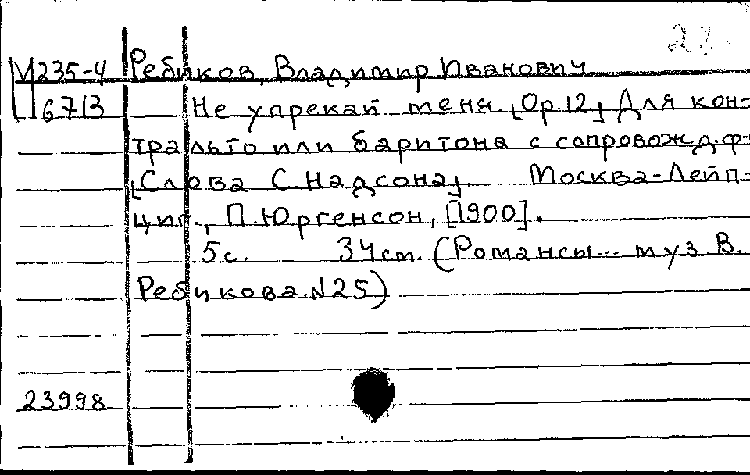 27.
М235-4 Ребиков, Владимир Иванович
6713 Не упрекай меня. [Op.12] Для кон-
тральто или баритона с сопровожд. ф-
[Слова С. Надсона]. Москва-Лейп-
циг, П. Юргенсон, [1900].
5с. 34см. (Романсы... муз. В.
Ребикова. N25)
23998